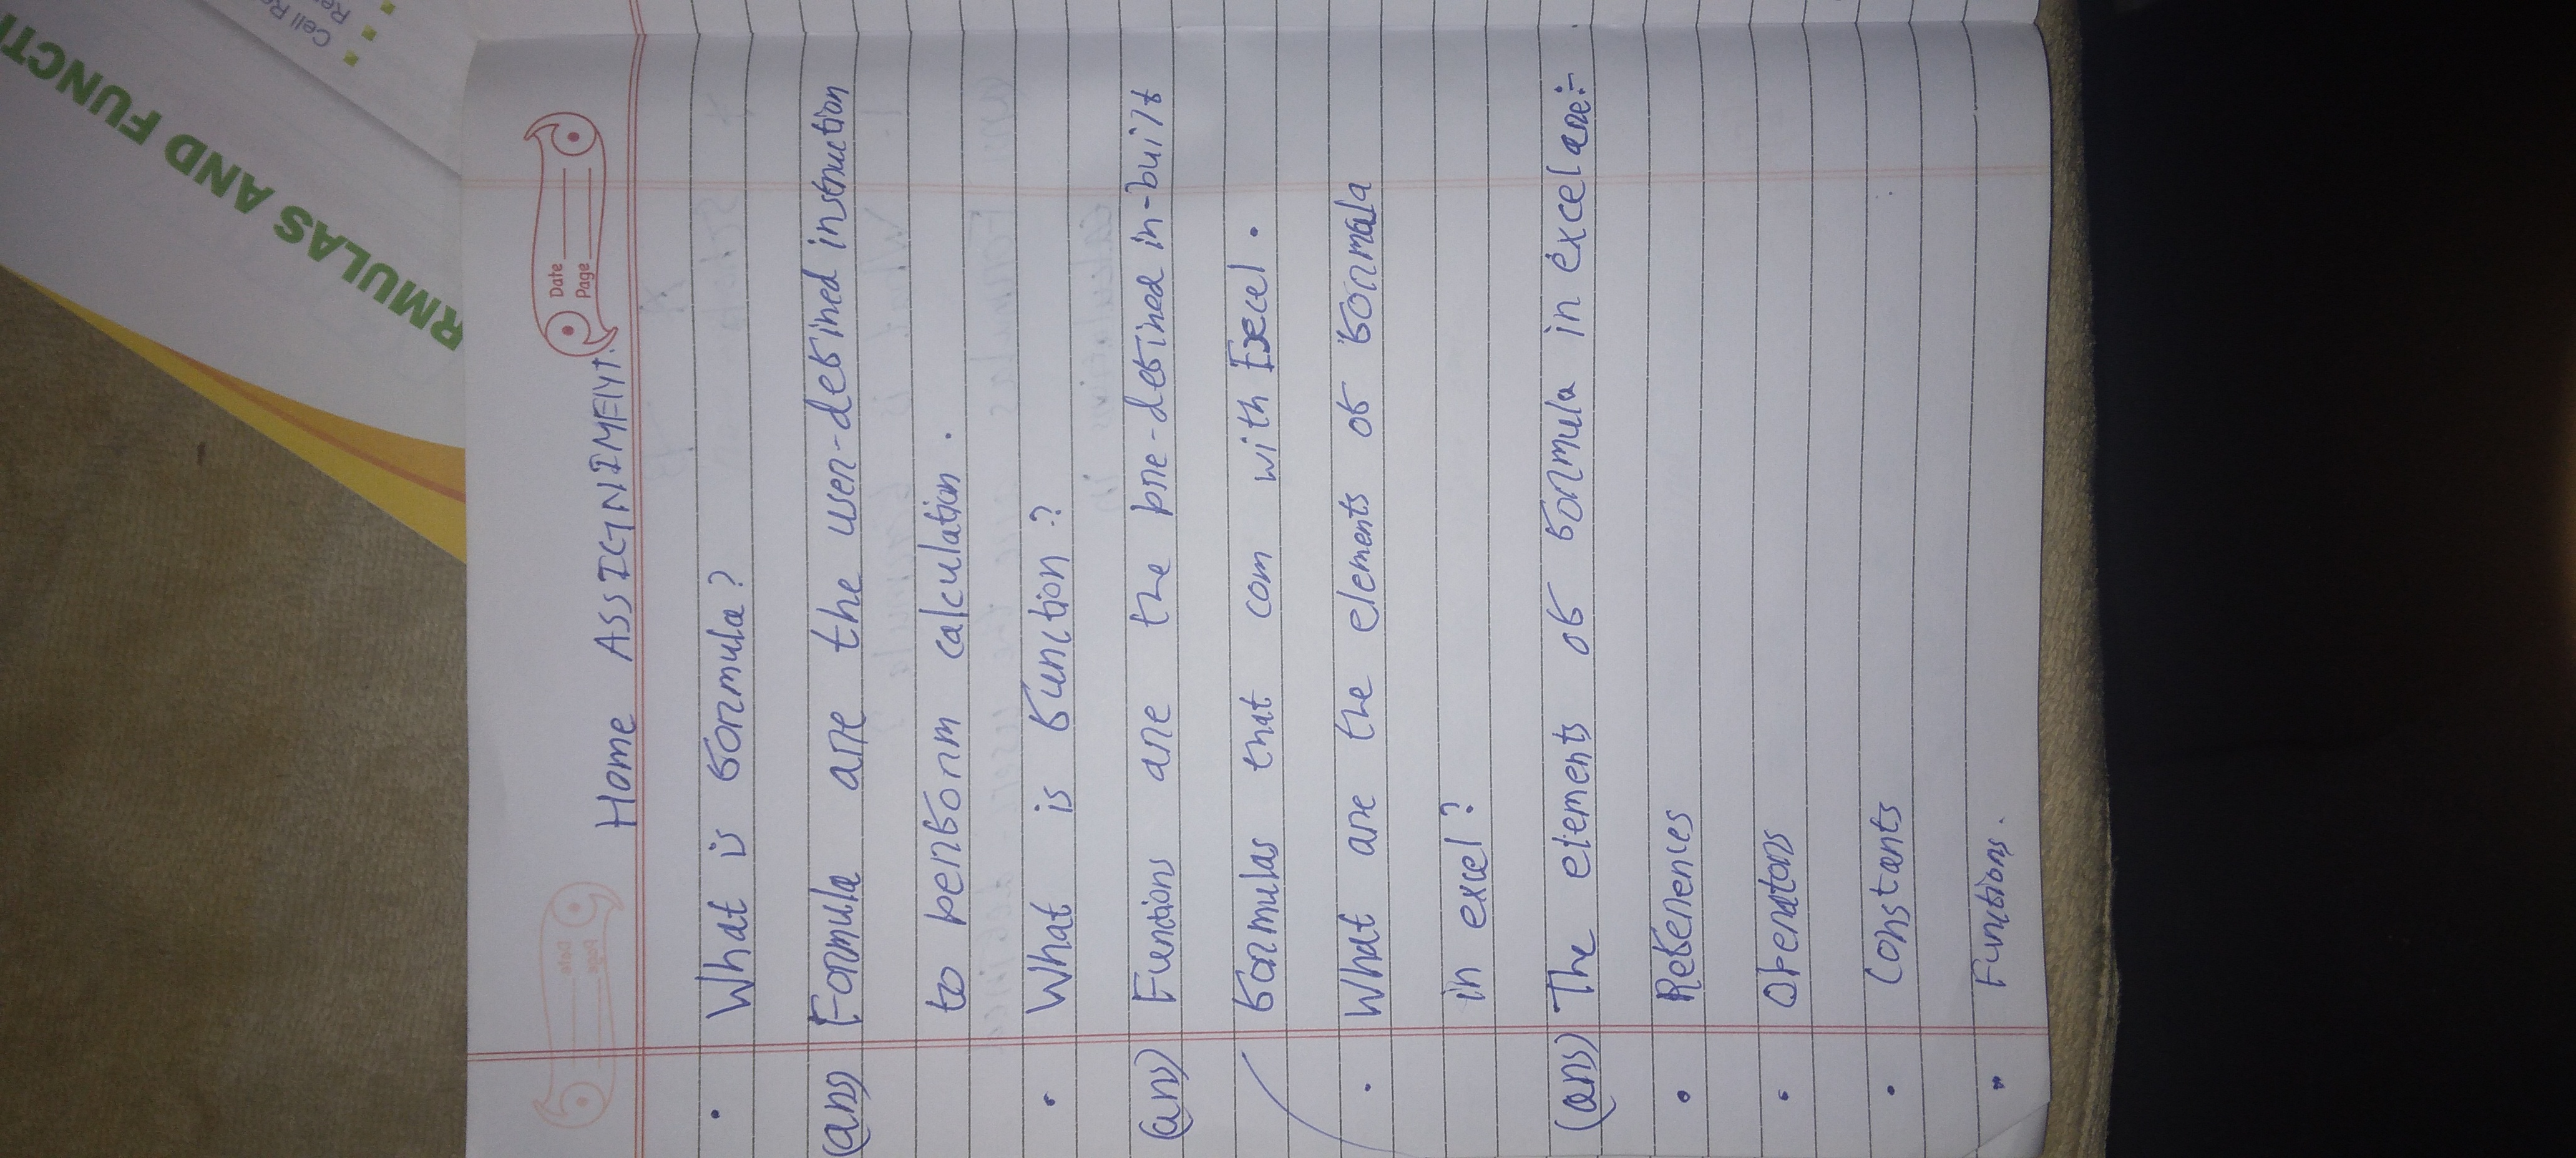 RMULAS AND FUNCTI
Cell Re
Re
Date
Page
Home ASSIGNIMENT.
• What is formula?
(ans) Formula are the user-defined instruction
to perform calculation.
• What is function?
(ans) Functions are the pre-defined in-built
formulas that com with Excel.
• What are the elements of formula
in excel?
(ans) The elements of formula in excel are:-
• References
• Operators
• Constants
• Functions.